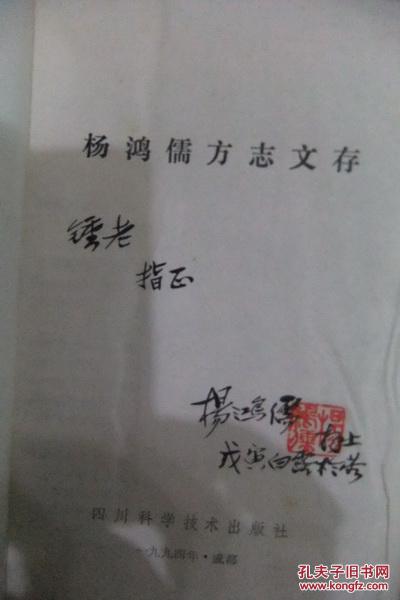 杨鸿儒方志文存
鍾老
指正
楊鴻儒 持上
戊寅白露於蓉
四川科学技术出版社
一九九四年·成都
孔夫子旧书网